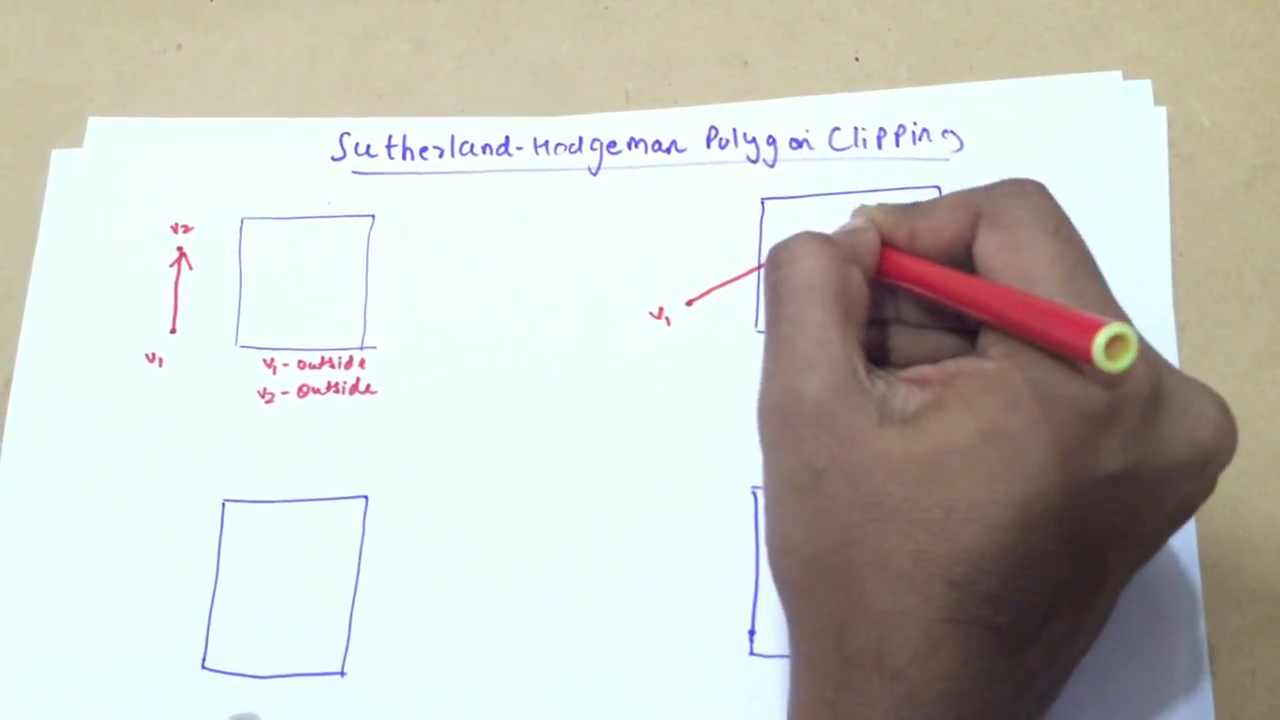 Sutherland-Hodgeman Polygon Clipping
v2
v1
v1 - outside
v2 - outside
v1